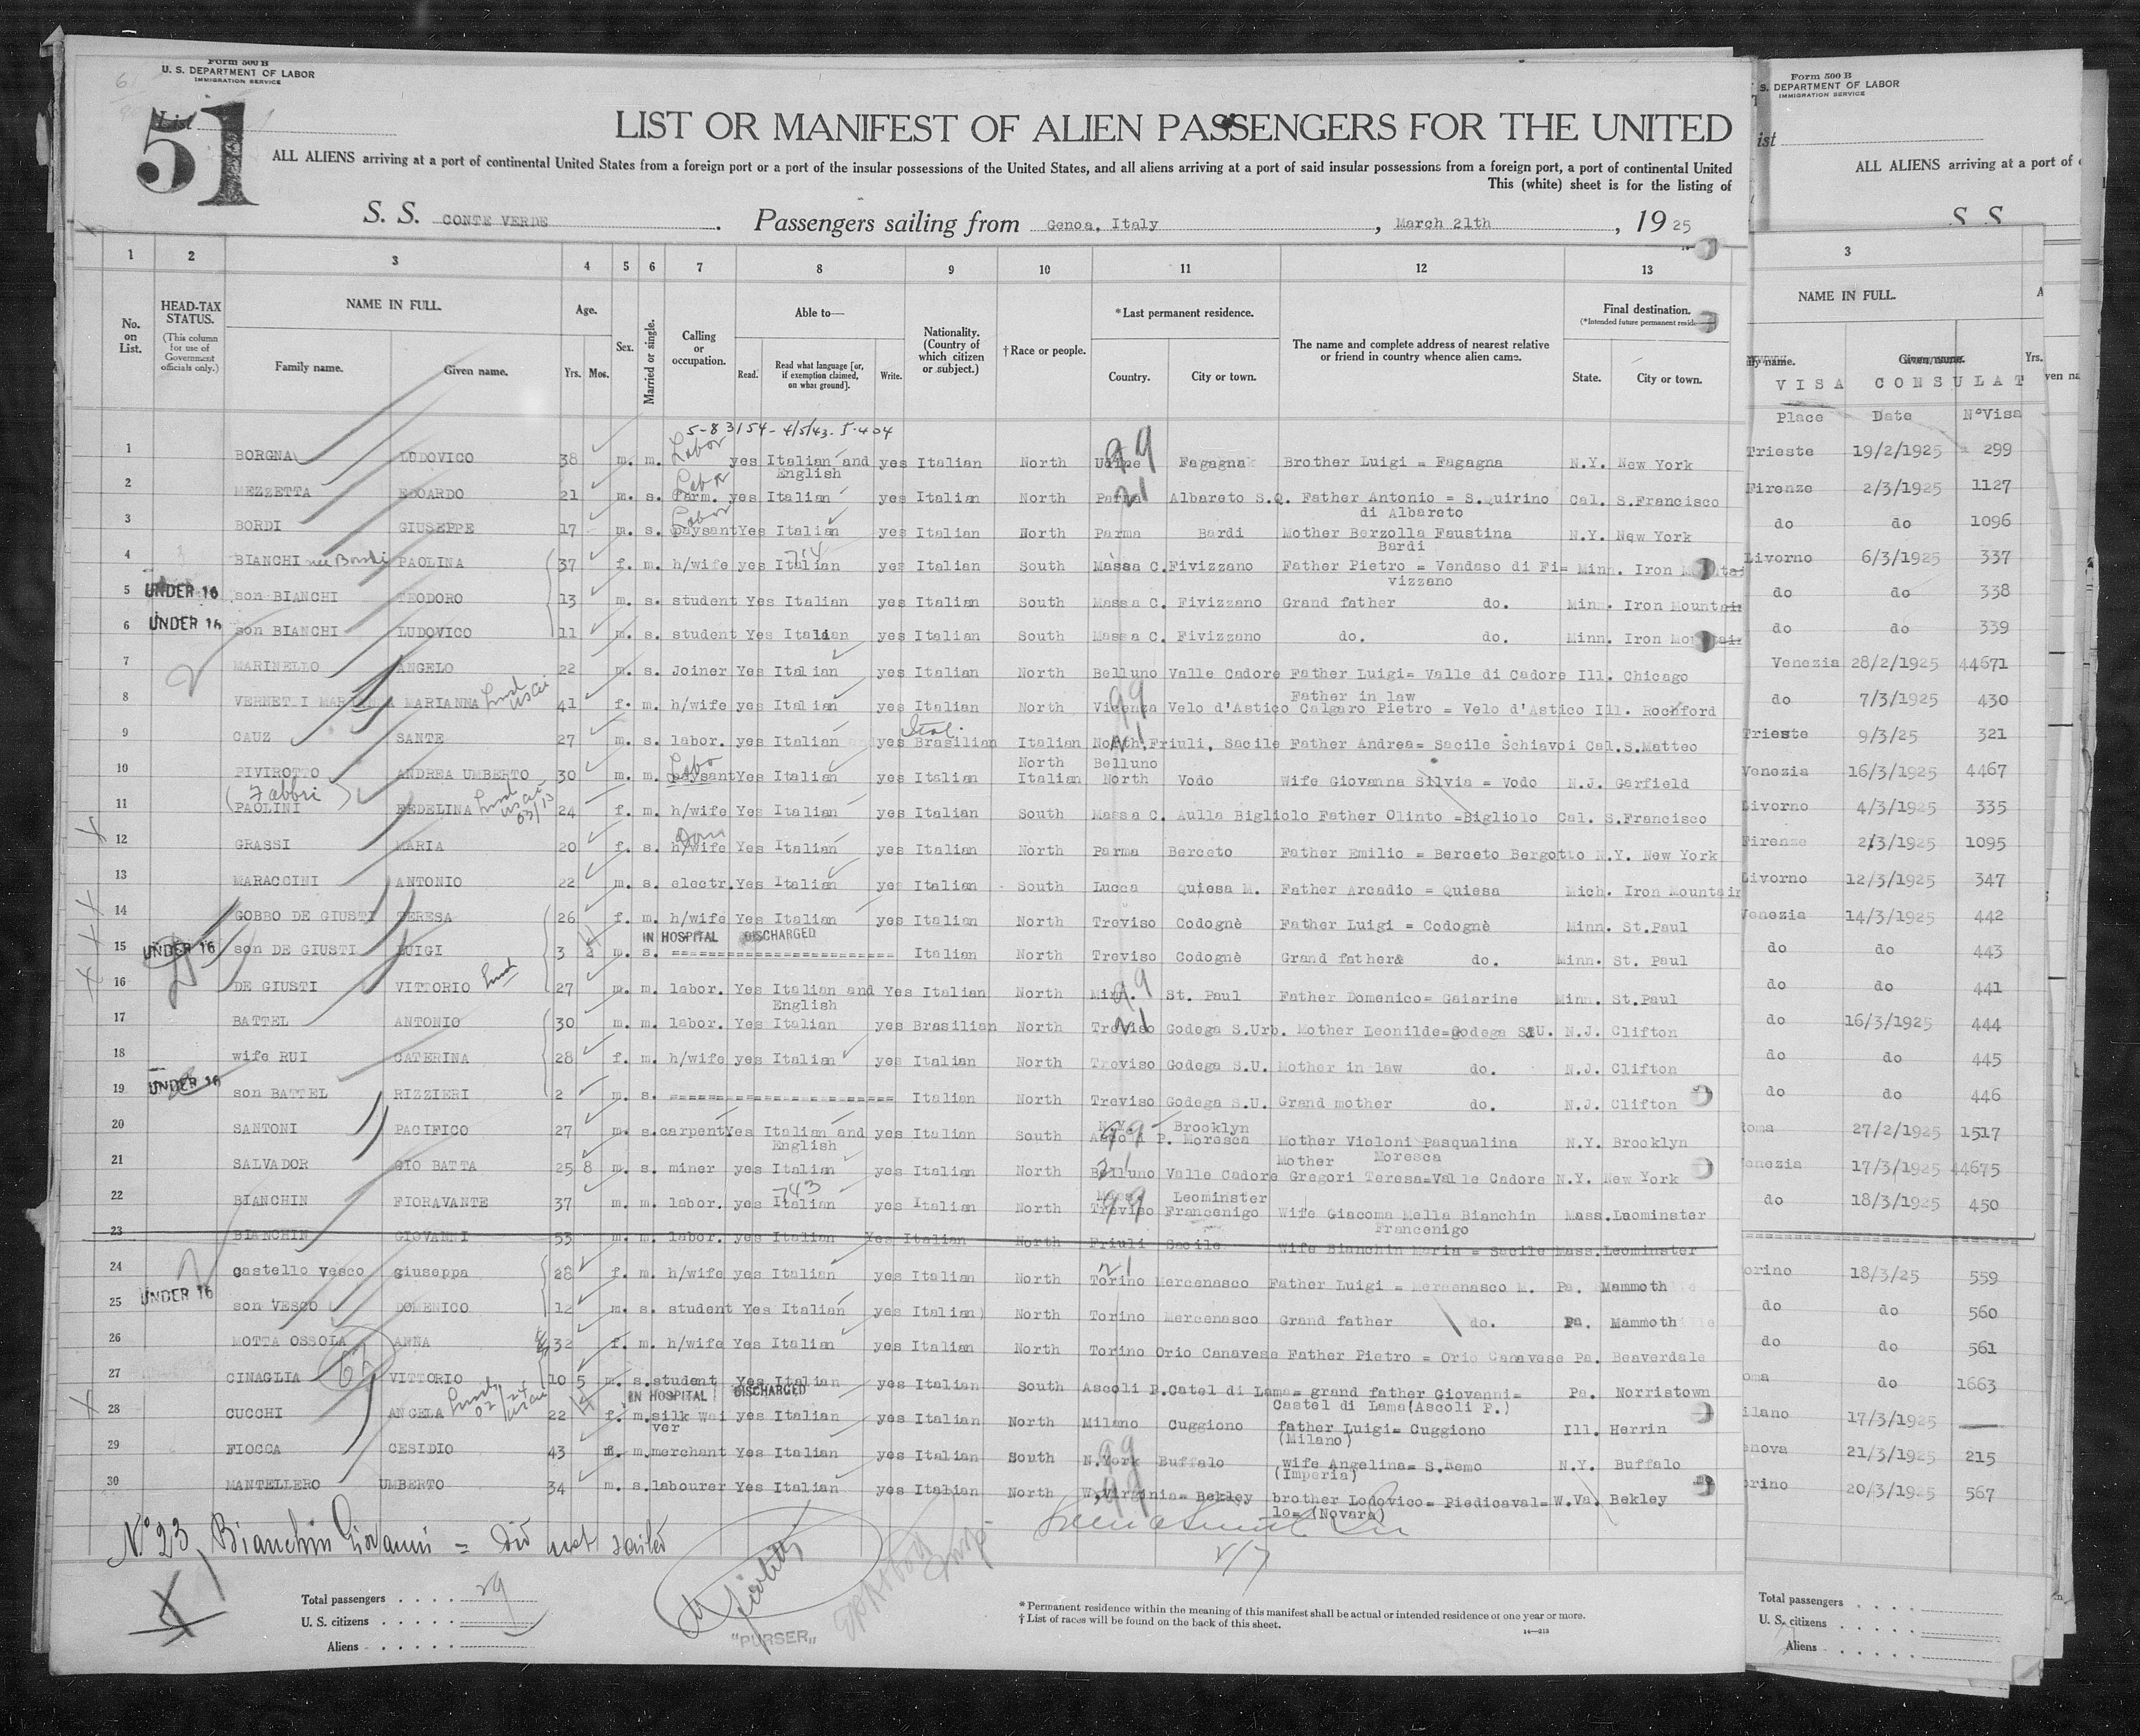 Form 500 B
U. S. DEPARTMENT OF LABOR
IMMIGRATION SERVICE
List
51
LIST OR MANIFEST OF ALIEN PASSENGERS FOR THE UNITED
ALL ALIENS arriving at a port of continental United States from a foreign port or a port of the insular possessions of the United States, and all aliens arriving at a port of said insular possessions from a foreign port, a port of continental United
This (white) sheet is for the listing of
S. S. CONTE VERDE. Passengers sailing from Genoa, Italy, March 21th, 1925
1 2 3 4 5 6 7 8 9 10 11 12 13
No. on List. HEAD-TAX STATUS. (This column for use of Government officials only.) NAME IN FULL. Family name. Given name. Age. Yrs. Mos. Sex. Married or single. Calling or occupation. Able to— Read. Read what language [or, if exemption claimed, on what ground]. Write. Nationality. (Country of which citizen or subject.) †Race or people. *Last permanent residence. Country. City or town. The name and complete address of nearest relative or friend in country whence alien came. Final destination. State. City or town.
VISA CONSULAT
Place Date N°Visa
5-83154-4/5/43.
1 BORGNA LUDOVICO 38 m. m. Labor yes Italian and English yes Italian North Udine Fagagna Brother Luigi = Fagagna N.Y. New York Trieste 19/2/1925 299
2 MEZZETTA EDOARDO 21 m. s. farm. Labor yes Italian yes Italian North Parma Albareto S.Q. Father Antonio = S.Quirino di Albareto Cal. S.Francisco Firenze 2/3/1925 1127
3 BORDI GIUSEPPE 17 m. s. paysant Labor Yes Italian yes Italian North Parma Bardi Mother Berzolla Faustina Bardi N.Y. New York do do 1096
4 BIANCHI née Bordi PAOLINA 37 f. m. h/wife yes Italian yes Italian South Massa C. Fivizzano Father Pietro = Vendaso di Fi= vizzano Minn. Iron Livorno 6/3/1925 337
5 UNDER 16 son BIANCHI TEODORO 13 m. s. student Yes Italian yes Italian South Massa C. Fivizzano Grand father do. Minn. Iron Mountain do do 338
6 UNDER 16 son BIANCHI LUDOVICO 11 m. s. student Yes Italian yes Italian South Massa C. Fivizzano do. do. Minn. Iron Mountain do do 339
7 MARINELLO ANGELO 22 m. s. Joiner Yes Italian yes Italian North Belluno Valle Cadore Father Luigi= Valle di Cadore Ill. Chicago Venezia 28/2/1925 44671
8 MARIANNA 41 f. m. h/wife yes Italian yes Italian North Vicenza Velo d'Astico Father in law Calgaro Pietro = Velo d'Astico Ill. Rockford do 7/3/1925 430
9 CAUZ SANTE 27 m. s. labor. yes Italian yes Brasilian Ital. Italian North Friuli, Sacile Father Andrea= Sacile Schiavoi Cal. S.Matteo Trieste 9/3/25 321
10 PIVIROTTO ANDREA UMBERTO 30 m. m. paysant Labo Yes Italian yes Italian North Italian Belluno North Vodo Wife Giovanna Silvia = Vodo N.J. Garfield Venezia 16/3/1925 4467
11 (Fabbri) PAOLINI FEDELINA 24 f. m. h/wife Yes Italian yes Italian South Massa C. Aulla Bigliolo Father Olinto =Bigliolo Cal. S.Francisco Livorno 4/3/1925 335
12 GRASSI MARIA 20 f. s. h/wife Dom Yes Italian yes Italian North Parma Berceto Father Emilio = Berceto Bergotto N.Y. New York Firenze 2/3/1925 1095
13 MARACCINI ANTONIO 22 m. s. electr. Yes Italian yes Italian South Lucca Quiesa M. Father Arcadio = Quiesa Mich. Iron Mountain Livorno 12/3/1925 347
14 GOBBO DE GIUSTI TERESA 26 f. m. h/wife Yes Italian yes Italian North Treviso Codognè Father Luigi = Codognè Minn. St.Paul Venezia 14/3/1925 442
IN HOSPITAL DISCHARGED
15 UNDER 16 son DE GIUSTI LUIGI 3 m. s. ======================== Italian North Treviso Codognè Grand father do. Minn. St. Paul do do 443
16 DE GIUSTI VITTORIO 27 m. m. labor. Yes Italian and English Yes Italian North Minn. St. Paul Father Domenico= Gaiarine Minn. St.Paul do do 441
17 BATTEL ANTONIO 30 m. m. labor. Yes Italian yes Brasilian North Treviso Godega S.Urb. Mother Leonilde=Godega S.U. N.J. Clifton do 16/3/1925 444
18 wife RUI CATERINA 28 f. m. h/wife yes Italian yes Italian North Treviso Godega S.U. Mother in law do. N.J. Clifton do do 445
19 UNDER 16 son BATTEL RIZZIERI 2 m. s. ======================== Italian North Treviso Godega S.U. Grand mother do. N.J. Clifton do do 446
20 SANTONI PACIFICO 27 m. s. carpent Yes Italian and English yes Italian South N.Y. Brooklyn Ascoli P. Moresca Mother Violoni Pasqualina Moresca N.Y. Brooklyn Roma 27/2/1925 1517
21 SALVADOR GIO BATTA 25 8 m. s. miner yes Italian yes Italian North Belluno Valle Cadore Mother Gregori Teresa=Valle Cadore N.Y. New York Venezia 17/3/1925 44675
22 BIANCHIN FIORAVANTE 37 m. m. labor. yes Italian yes Italian North Mass. Leominster Treviso Francenigo Wife Giacoma Mella Bianchin Francenigo Mass. Leominster do 18/3/1925 450
23 BIANCHIN GIOVANNI 53 m. m. labor. yes Italian Yes Italian North Friuli Sacile Wife Bianchin Maria = Sacile Mass. Leominster
24 castello Vesco giuseppa 28 f. m. h/wife yes Italian yes Italian North Torino Mercenasco Father Luigi = Mercenasco M. Pa. Mammoth Torino 18/3/25 559
25 UNDER 16 son VESCO DOMENICO 12 m. s. student Yes Italian yes Italian) North Torino Mercenasco Grand father do. Pa. Mammoth do do 560
26 MOTTA OSSOLA ANNA 32 f. m. h/wife Yes Italian yes Italian North Torino Orio Canavese Father Pietro = Orio Canavese Pa. Beaverdale do do 561
27 CINAGLIA VITTORIO 10 5 m. s. student Yes Italian yes Italian South Ascoli P. Catel di Lama= grand father Giovanni= Castel di Lama(Ascoli P.) Pa. Norristown Roma do 1663
IN HOSPITAL DISCHARGED
28 CUCCHI ANGELA 22 f. m. silk wai ver yes Italian yes Italian North Milano Cuggiono father Luigi= Cuggiono (Milano) Ill. Herrin Milano 17/3/1925 —
29 FIOCCA CESIDIO 43 m. m. merchant Yes Italian yes Italian South N.York Buffalo wife Angelina= S.Remo (Imperia) N.Y. Buffalo Genova 21/3/1925 215
30 MANTELLERO UMBERTO 34 m. s. labourer Yes Italian yes Italian North W.Virginia= Bekley brother Lodovico= Piedicaval= lo= (Novara) W.Va. Bekley Torino 20/3/1925 567
N° 23, Bianchin Giovanni = Did not sailed
Total passengers 29
U. S. citizens
Aliens
"PURSER"
* Permanent residence within the meaning of this manifest shall be actual or intended residence of one year or more.
† List of races will be found on the back of this sheet.
14—213
Form 500 B
S. DEPARTMENT OF LABOR
IMMIGRATION SERVICE
ist
ALL ALIENS arriving at a port of
S. S.
3
NAME IN FULL.
Given name. Yrs.
Total passengers
U. S. citizens
Aliens